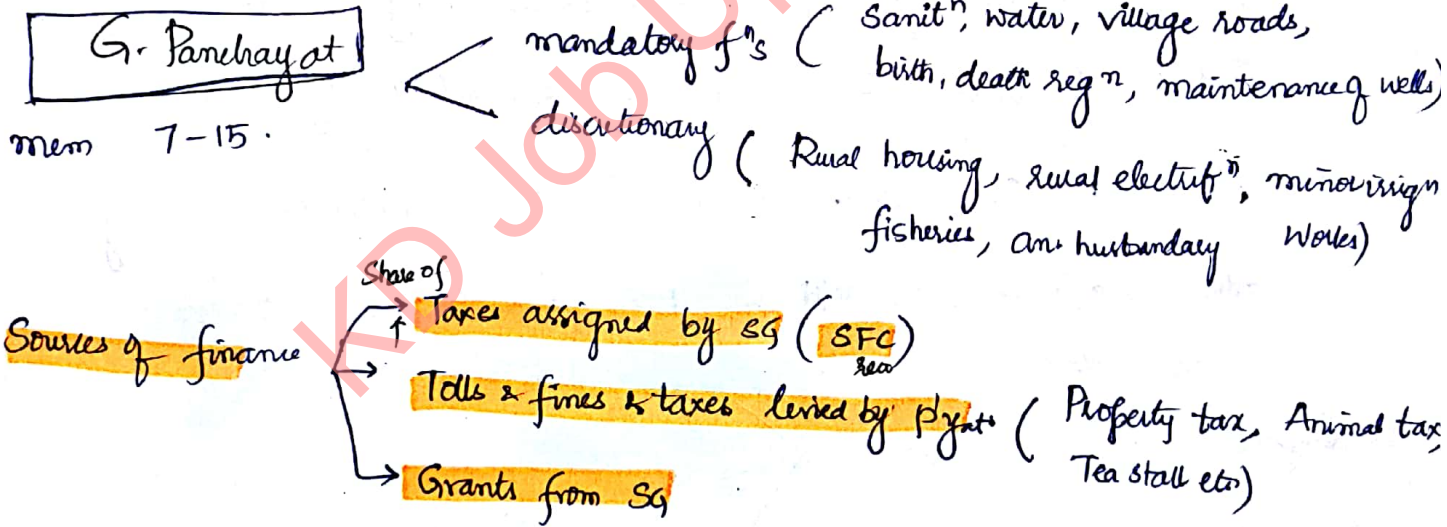 G. Panchayat
mandatory fⁿs ( Sanitⁿ, water, village roads,
birth, death regⁿ, maintenance of wells)
mem 7-15.
discretionary ( Rural housing, rural electrifⁿ, minor irrigⁿ
fisheries, an. husbandary works)
Share of
Sources of finance → Taxes assigned by SG (SFC)
reco
→ Tolls & fines & taxes levied by pyats ( Property tax, Animal tax,
Tea stall etc)
→ Grants from SG
KD Job U